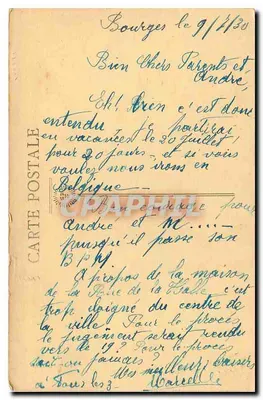 Bourges le 9/7/30
Bien Chers Parents et
André,
Eh! bien c'est donc
entendu je partirai
en vacances le 20 juillet
pour 20 jours et si vous
voulez nous irons en
Belgique
pour
André et M....
puisqu'il passe son
B P M.
A propos de la maison
de la Rue de la Halle c'est
trop éloigné du centre de
la ville. Pour le procès
le jugement sera rendu
vers le 19? sur le procès
ou jamais?
Mes meilleurs baisers
à Tous les 3. Marcelle
CARTE POSTALE